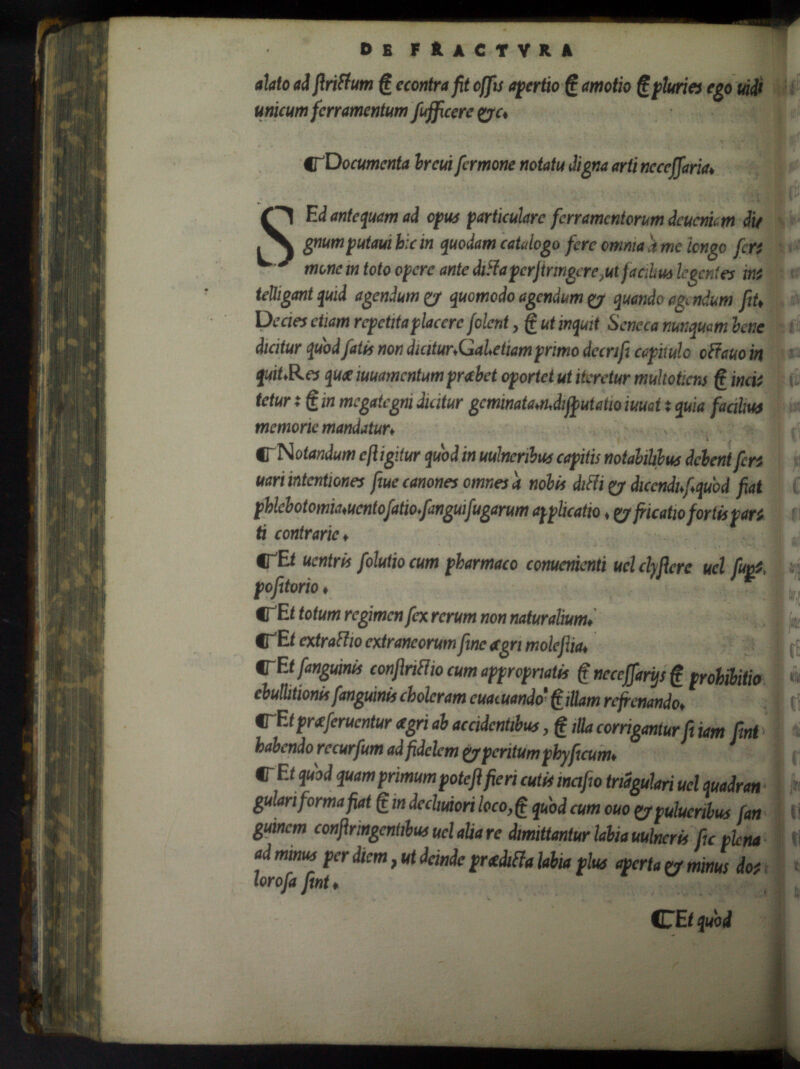 DE FRACTVRA
alato ad strictum & econtra fit ossis apertio & amotio & pluries ego uidi
unicum ferramentum sufficere &c.
¶ Documenta breui sermone notatu digna arti necessaria.
SEd antequam ad opus particulare ferramentorum deueniam di/
gnum putaui hic in quodam catalogo fere omnia a me longo ser=
mone in toto opere ante dicta perstringere, ut facilius legentes in=
telligant quid agendum & quomodo agendum & quando agendum sit.
Decies etiam repetita placere solent, & ut inquit Seneca nunquam bene
dicitur quod satis non dicitur. Gal. etiam primo decrisi capitulo octauo in
quit. Res quæ iuuamentum præbet oportet ut iteretur multotiens & inci=
tetur: & in megategni dicitur geminata.n.disputatio iuuat: quia facilius
memorie mandatur.
¶ Notandum est igitur quod in uulneribus capitis notabilibus debent ser=
uari intentiones siue canones omnes a nobis dicti & dicendi.s.quod fiat
phlebotomia.uentosatio.sanguisugarum applicatio. & fricatio fortis par=
ti contrarie.
¶ Et uentris solutio cum pharmaco conuenienti uel clystere uel sup=
positorio.
¶ Et totum regimen sex rerum non naturalium.
¶ Et extractio extraneorum sine ægri molestia.
¶ Et sanguinis constrictio cum appropriatis & necessarijs & prohibitio
ebullitionis sanguinis choleram euacuando & illam refrenando.
¶ Et præseruentur ægri ab accidentibus, & illa corrigantur si iam sint
habendo recursum ad fidelem & peritum physicum.
¶ Et quod quam primum potest fieri cutis incisio triãgulari uel quadran
gulari forma fiat & in decliuiori loco, & quod cum ouo & pulueribus san
guinem constringentibus uel alia re dimittantur labia uulneris sic plena
ad minus per diem, ut deinde prædicta labia plus aperta & minus do=
lorosa sint.
¶ Et quod